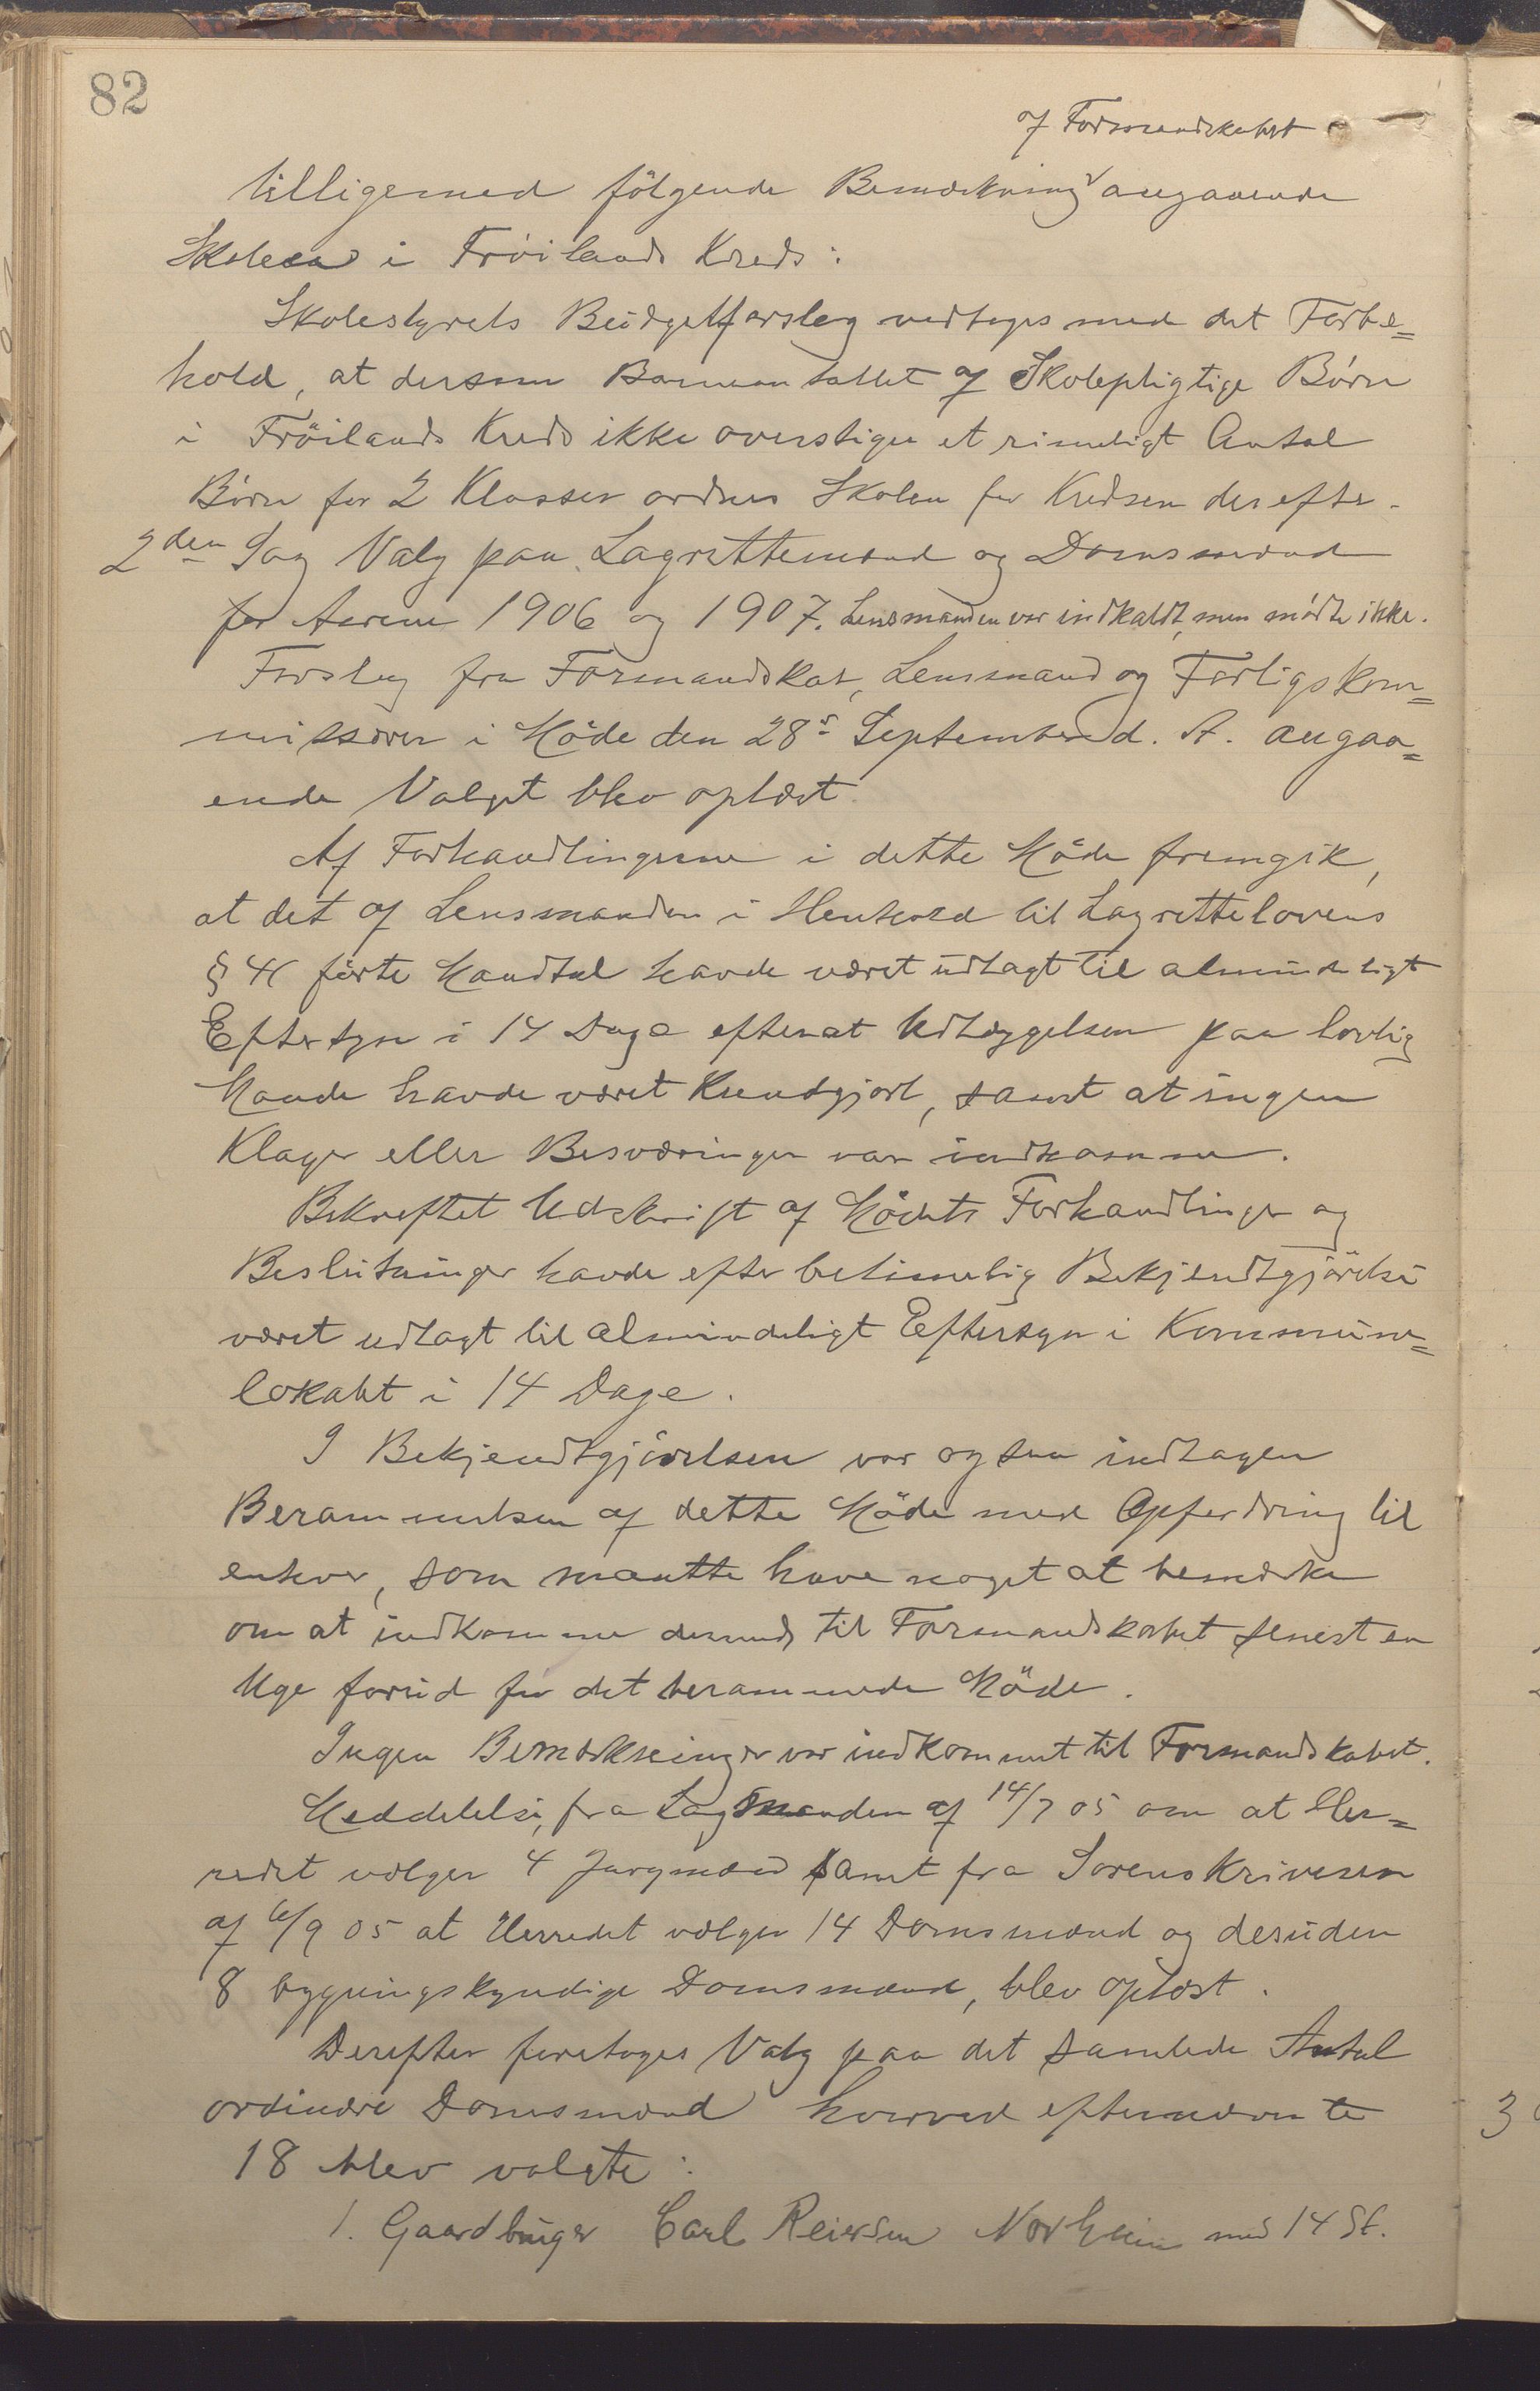 82
af Formandskabet
tilligemed følgende Bemerkning angaaende
Skolen i Frøilands Kreds:
Skolestyrets Budgetforslag vedtages med det Forbe=
hold, at dersom Barneantallet af Skolepligtige Børn
i Frøilands Kreds ikke overstiger et rimeligt Antal
Børn for 2 Klasser ordnes Skolen for Kredsen derefter.
2den Sag Valg paa Lagrettemænd og Domsmænd
for Aarene 1906 og 1907. Lensmanden var indkaldt, men mødte ikke.
Forslag fra Formandskab, Lensmand og Forligskom=
missærer i Møde den 28s September d. A. angaa=
ende Valget blev oplæst.
Af Forhandlingerne i dette Møde fremgik,
at det af Lensmanden i Henhold til Lagrettelovens
§ 41 førte Mandtal havde været udlagt til almindeligt
Eftersyn i 14 Dage efterat Udlæggelsen paa lovlig
Maade havde været kundgjort, samt at ingen
Klager eller Besværinger var indkomne.
Bekreftet Udskrift af Mødets Forhandlinger og
Beslutninger havde efter betimelig Bekjendtgjørelse
været udlagt til almindeligt Eftersyn i Kommune=
lokalet i 14 Dage.
I Bekjendtgjørelsen var ogsaa indtagen
Berammelsen af dette Møde med Opfordring til
enhver, som maatte have noget at bemerke
om at indkomme dermed til Formandskabet senest en
Uge forud for det berammede Møde.
Ingen Bemerkninger var indkommet til Formandskabet.
Meddelelse, fra Lagmanden af 14/7 05 om at Her=
redet vælger 4 Jurymænd samt fra Sorenskriveren
af 6/9 05 at Herredet vælger 14 Domsmænd og desuden
8 bygningskyndige Domsmænd, blev oplæst.
Derefter foretoges Valg paa det samlede Antal
ordinære Domsmænd hvorved efternævnte
18 blev valgte:
1. Gaardbruger Carl Reiersen Norheim med 14 St.
3